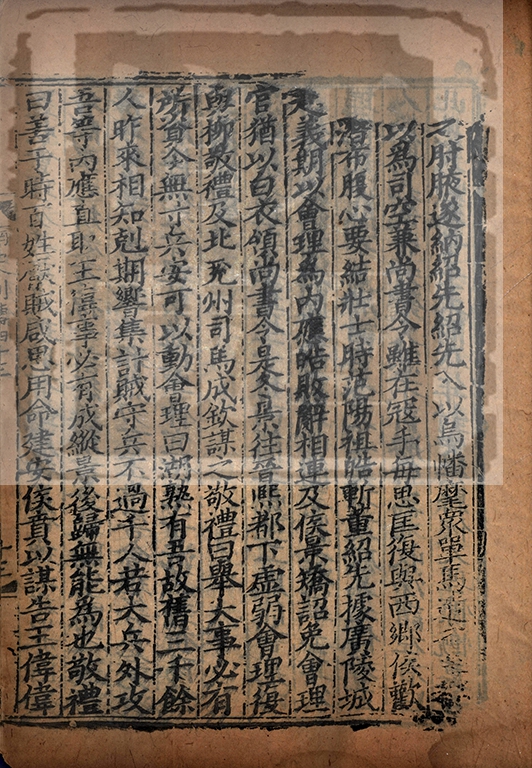 之肘腋遂納紹先紹先入以烏幡麾衆單馬遁
以為司空兼尚書令雖在寇手每思匡復與西鄉侯歡
潛布腹心要結壯士時范陽祖皓斬董紹先據廣陵城
起義期以會理為内應皓敗辭相連及侯景矯詔免會理
官猶以白衣領尚書令是冬景往晉熙都下虛弱會理復
與柳敬禮及北兗州司馬成欽謀之敬禮曰舉大事必有
所資今無寸兵安可以動會理曰湖熟有吾故舊三千餘
人昨來相知剋期響集計賊守兵不過千人若大兵外攻
吾等内應直取王偉事必有成縱景後歸無能為也敬禮
曰善于時百姓厭賊咸思用命建安侯賁以謀告王偉偉